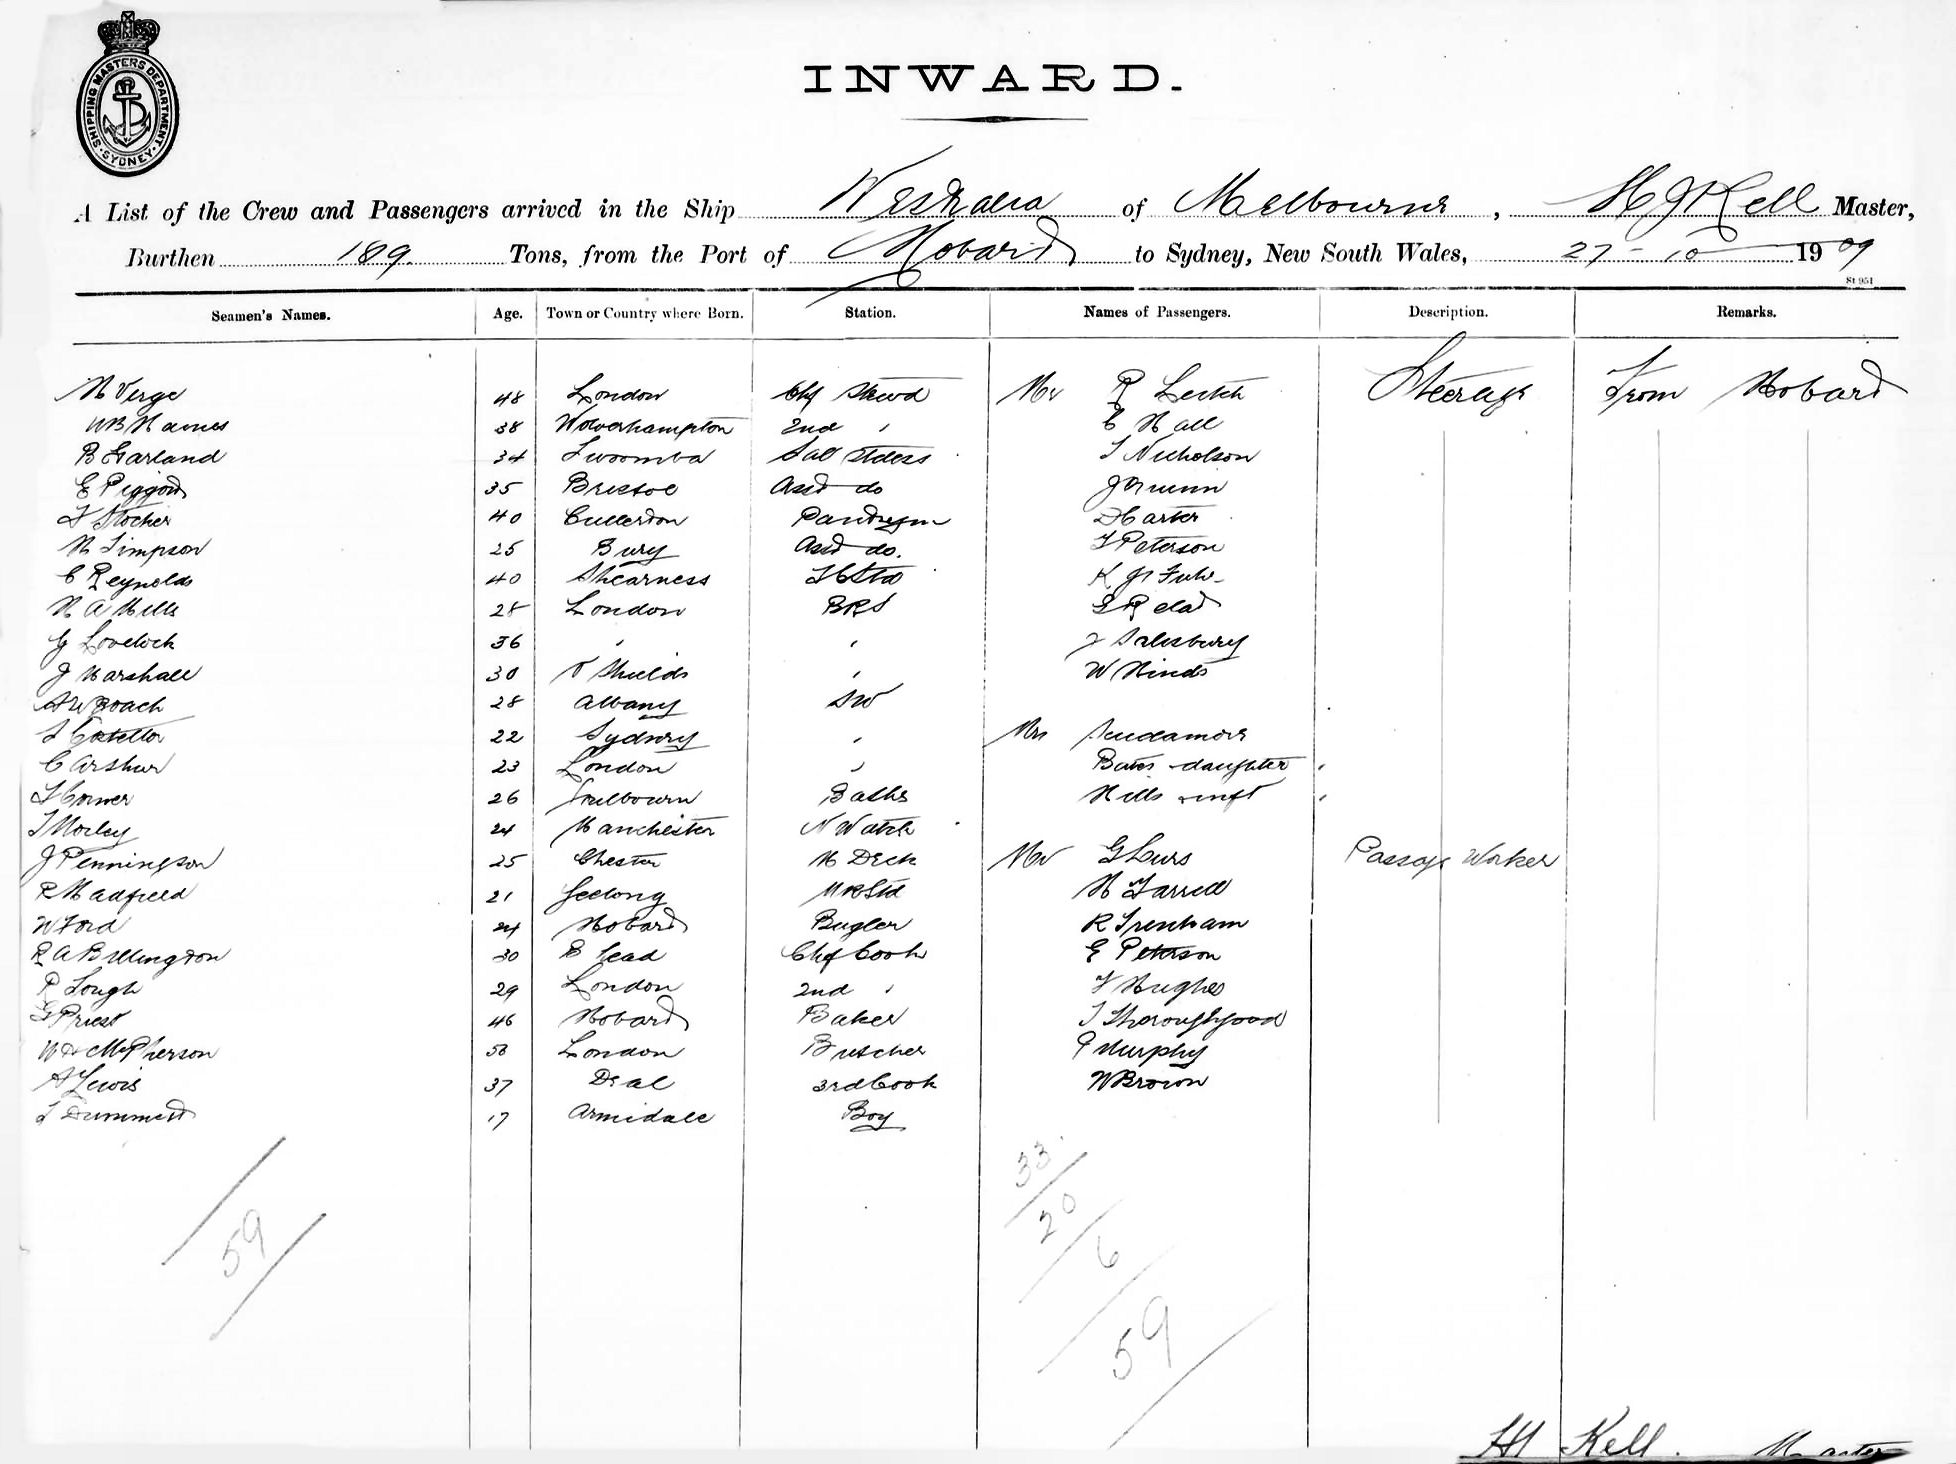 SHIPPING MASTERS DEPARTMENT · SYDNEY ·
INWARD.
A List of the Crew and Passengers arrived in the Ship Westralia of Melbourne, H J Kell Master,
Burthen 189. Tons, from the Port of Hobart to Sydney, New South Wales, 27-10 1909
St 951
Seamen's Names. Age. Town or Country where Born. Station. Names of Passengers. Description. Remarks.
H Verge 48 London Chf Stewd Mr R Leitch Steerage From Hobart
WB Hames 38 Wolverhampton 2nd " E Hall
B Garland 34 Sal T Nicholson
E Piggott 35 Bristol Asst do J
40 Pantrymn D Carter
H Simpson 25 Bury Asst do. Peterson
C Reynolds 40 Shearness K
H A Mills 28 London BRS
G Lovelock 36 " " Salisbury
J Marshall 30 Shields " W Hinds
Roach 28 Albany SW
22 Sydney " Mrs Scudamore
C Arthur 23 London " Bates & daughter "
26 Baths Hills & inft "
Morley 24 Manchester N Watch
J Pennington 25 Chester M Deck Mr G Passage Worker
R Hadfield 21 Geelong H Farrell
W Ford 24 Hobart Bugler R Trenham
R A Billington 30 Chf Cook E Peterson
P Lough 29 London 2nd " F Hughes
G Priest 46 Hobart Baker T Thoroughgood
McPherson London Butcher P Murphy
A Lewis 37 Deal 3rd Cook W Brown
17 Armidale Boy
33
20
6
59
59
Kell. Master